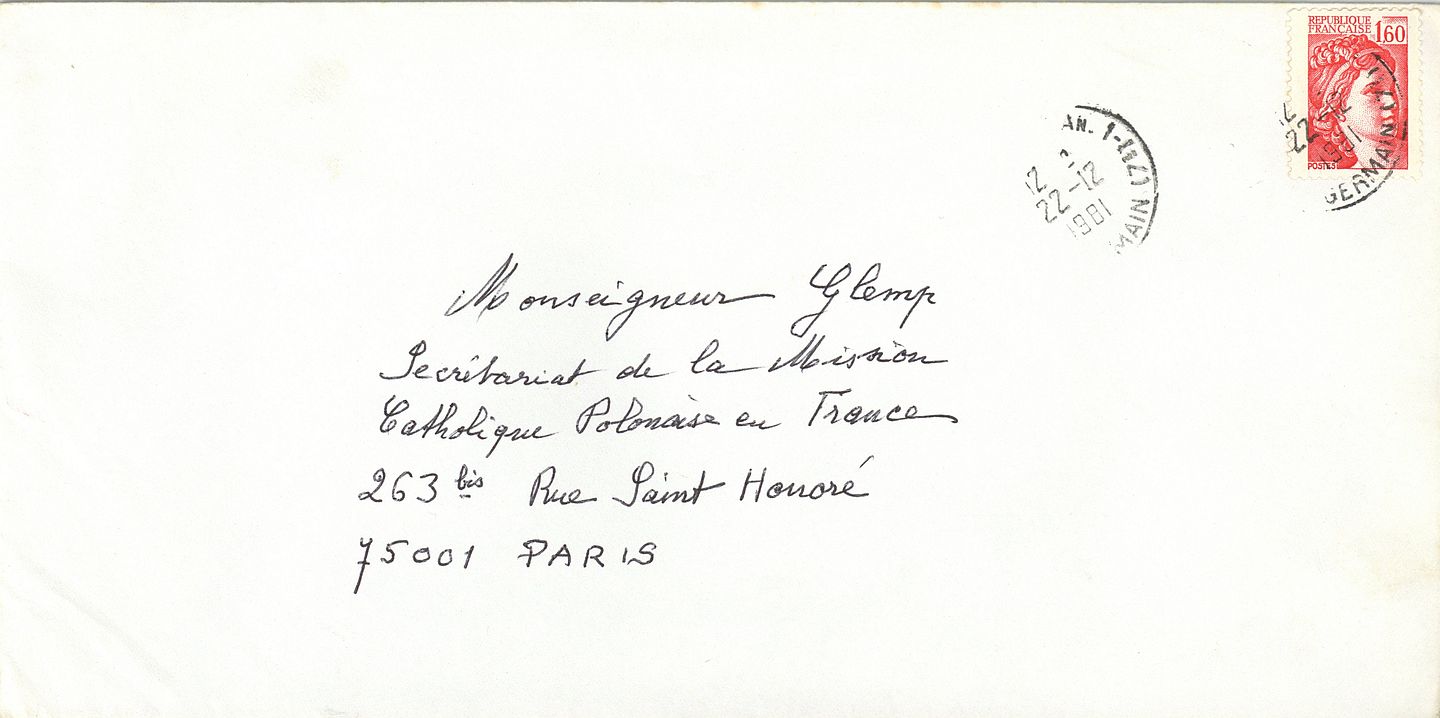 REPUBLIQUE
FRANÇAISE 1,60
POSTES
22-12
1981
GERMAIN
AN. 1-
12
22-12
1981
MAIN
Monseigneur Glemp
Secrétariat de la Mission
Catholique Polonaise en France
263 bis Rue Saint Honoré
75001 PARIS